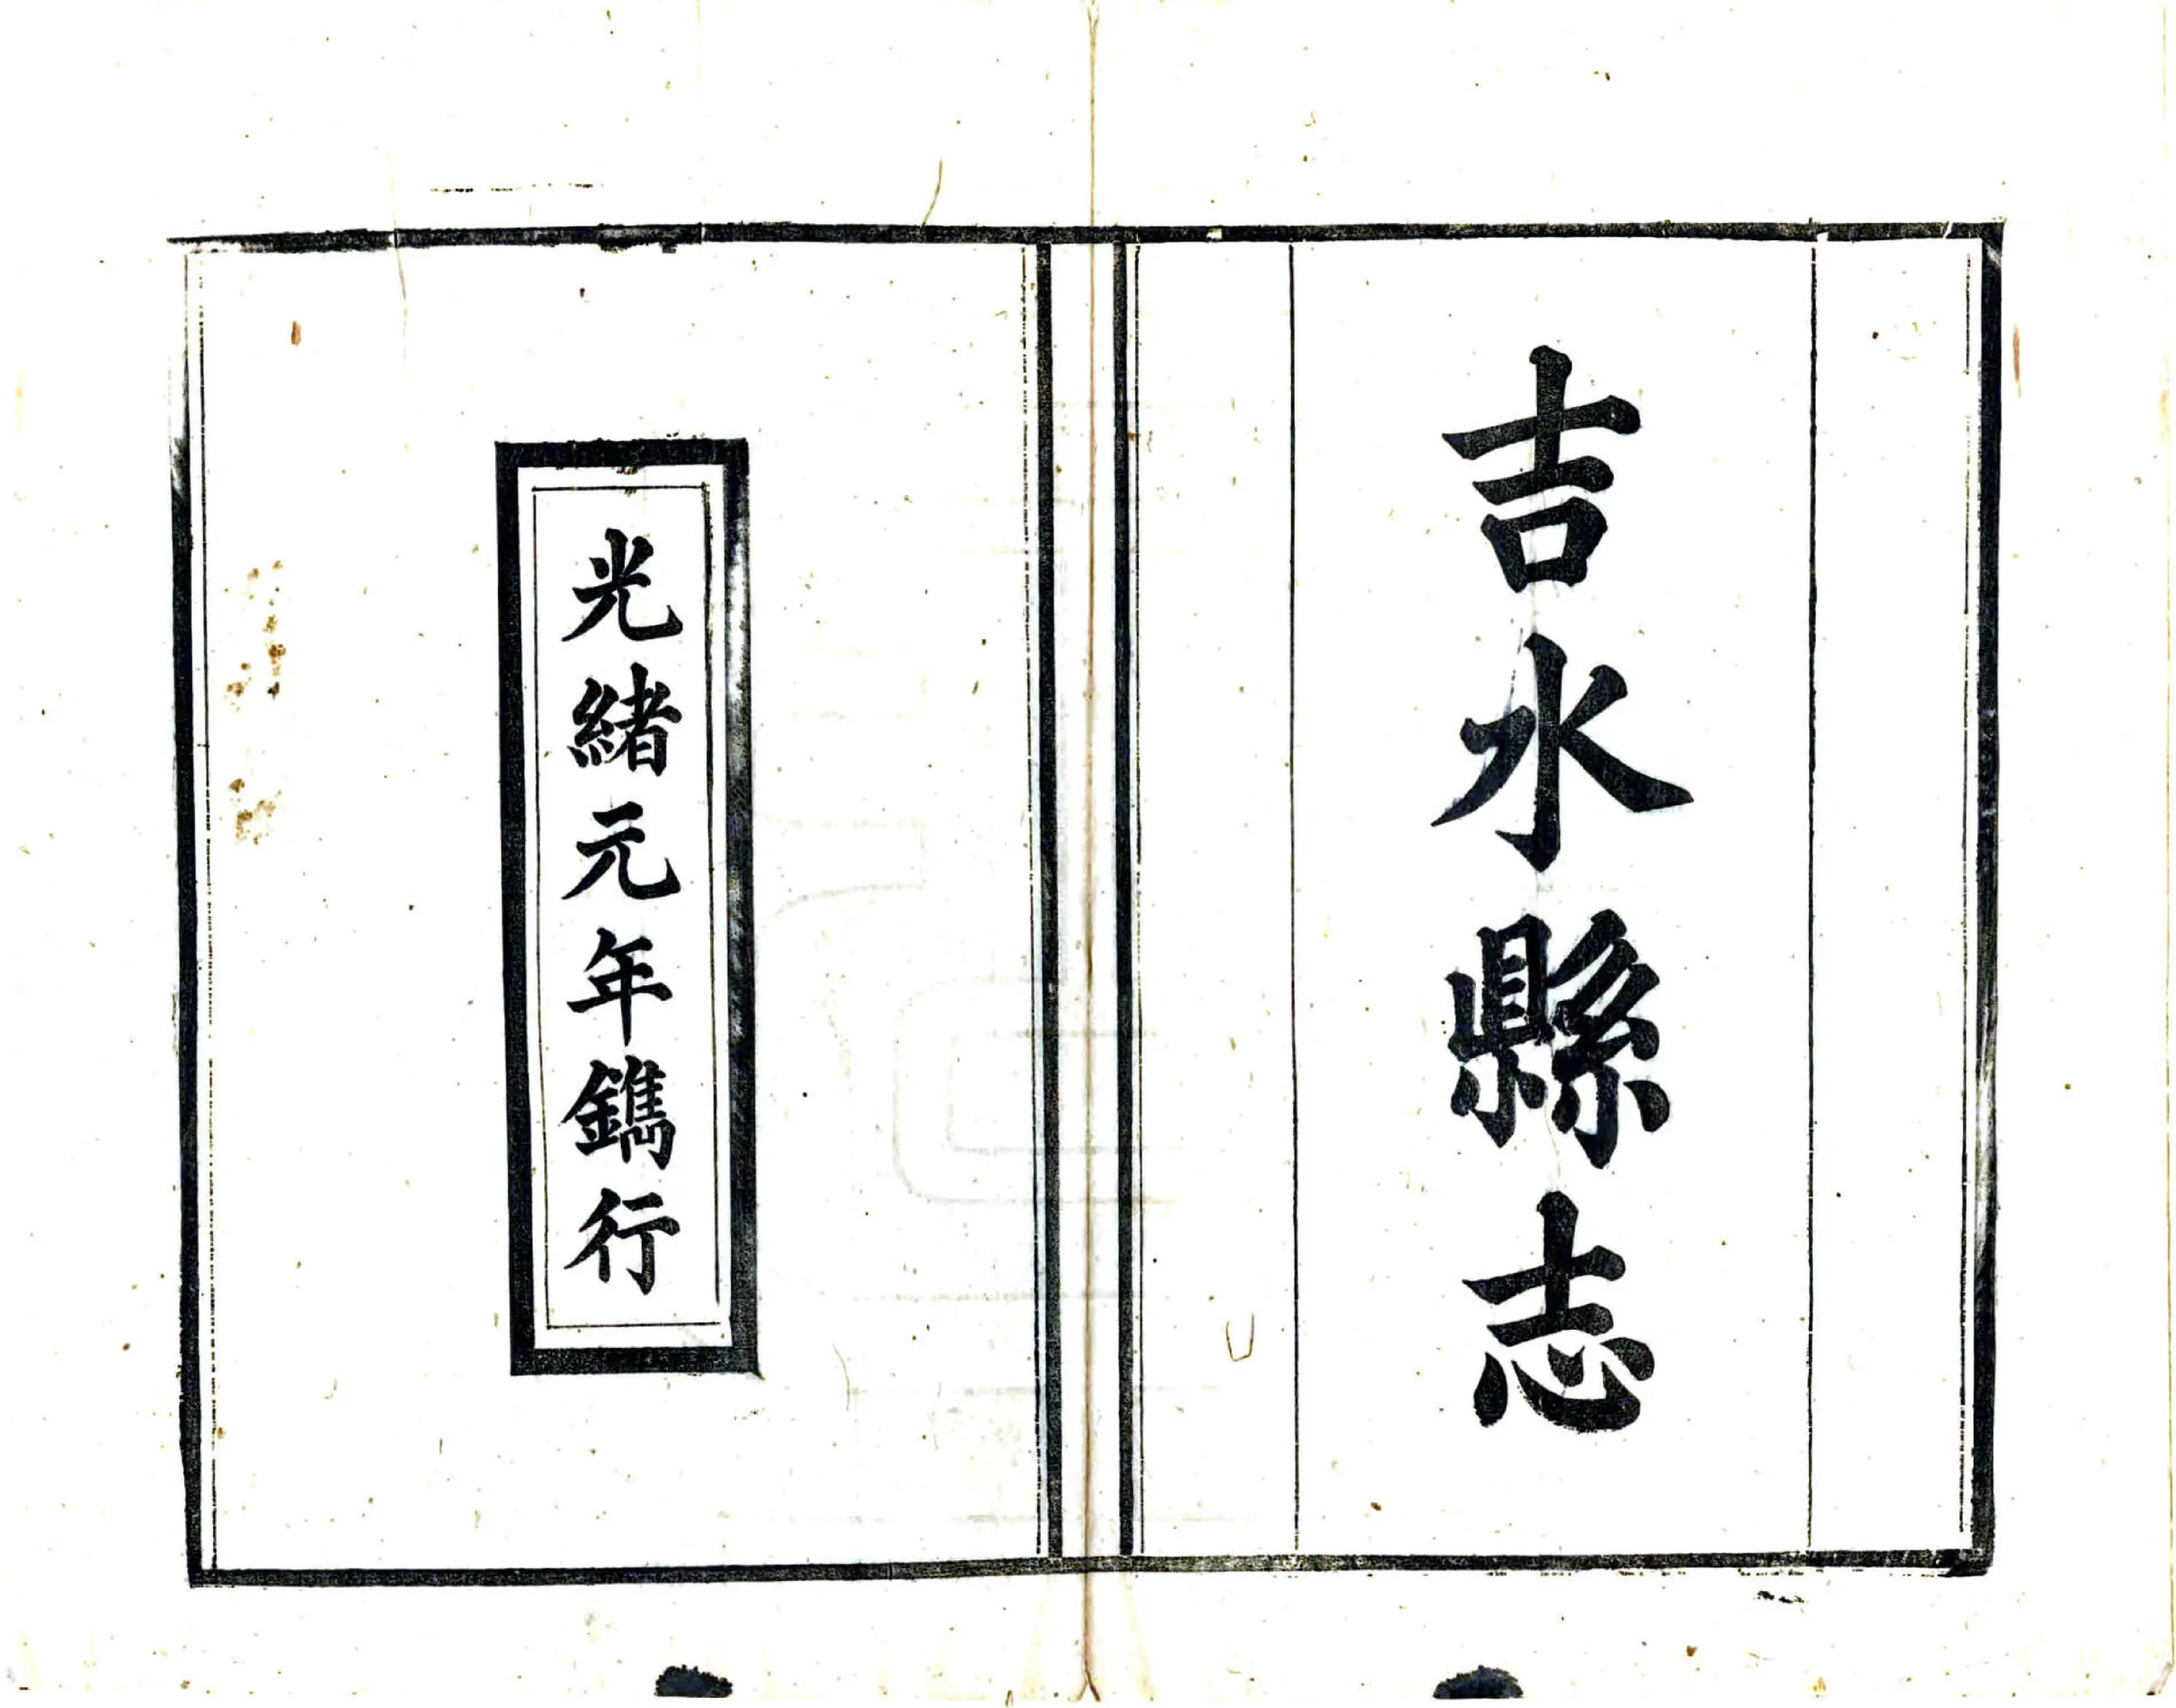 吉水縣志
光緒元年鐫行